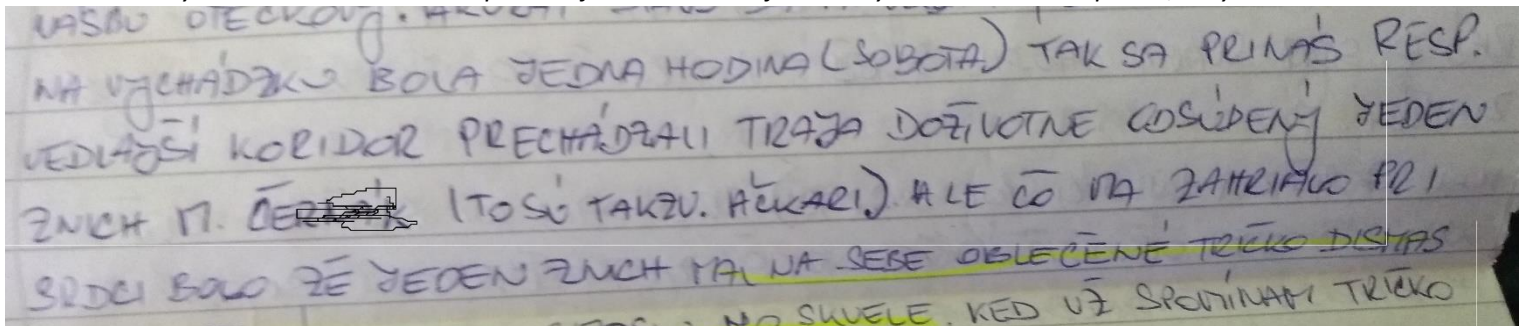 NA VYCHÁDZKU BOLA JEDNA HODINA (SOBOTA) TAK SA PRINÁS RESP.
VEDĽAJŠÍ KORIDOR PRECHÁDZALI TRAJA DOŽIVOTNE ODSÚDENÝ JEDEN
ZNICH M. (TO SÚ TAKZV. AČKARI.) ALE ČO MA ZAHRIALO PRI
SRDCI BOLO ŽE JEDEN ZNICH MAL NA SEBE OBLEČENÉ TRIČKO DISMAS
NO SKVELE. KED UŽ SPOMÍNAM TRIČKO